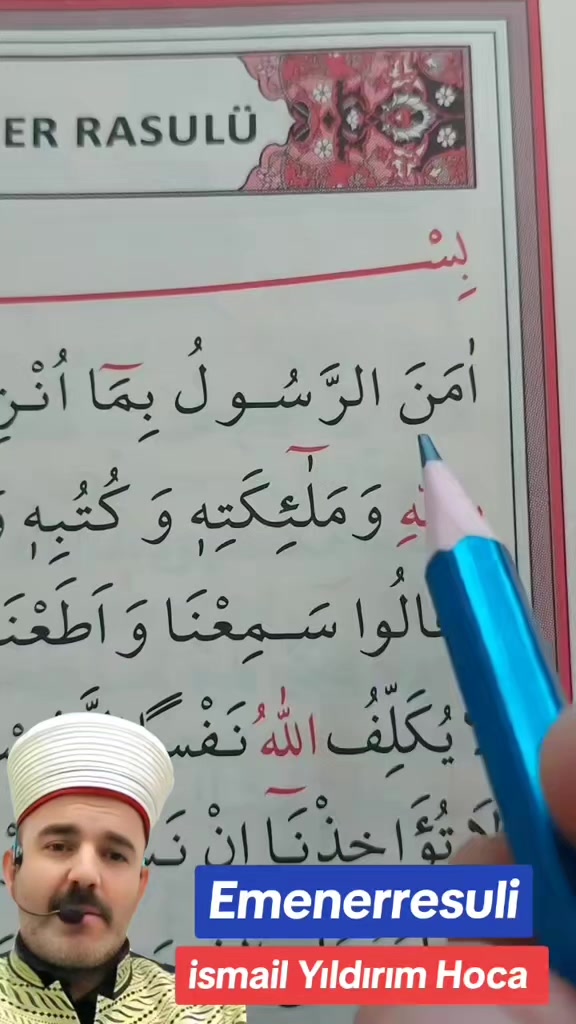 ER RASULÜ
بِسْ
اٰمَنَ الرَّسُولُ بِمَٓا اُنْزِ
وَمَلٰٓئِكَتِهٖ وَ كُتُبِهٖ وَ
قَالُوا سَمِعْنَا وَ اَطَعْنَا
يُكَلِّفُ اللّٰهُ نَفْسًا
لَا تُؤَاخِذْنَٓا اِنْ
Emenerresuli
ismail Yıldırım Hoca